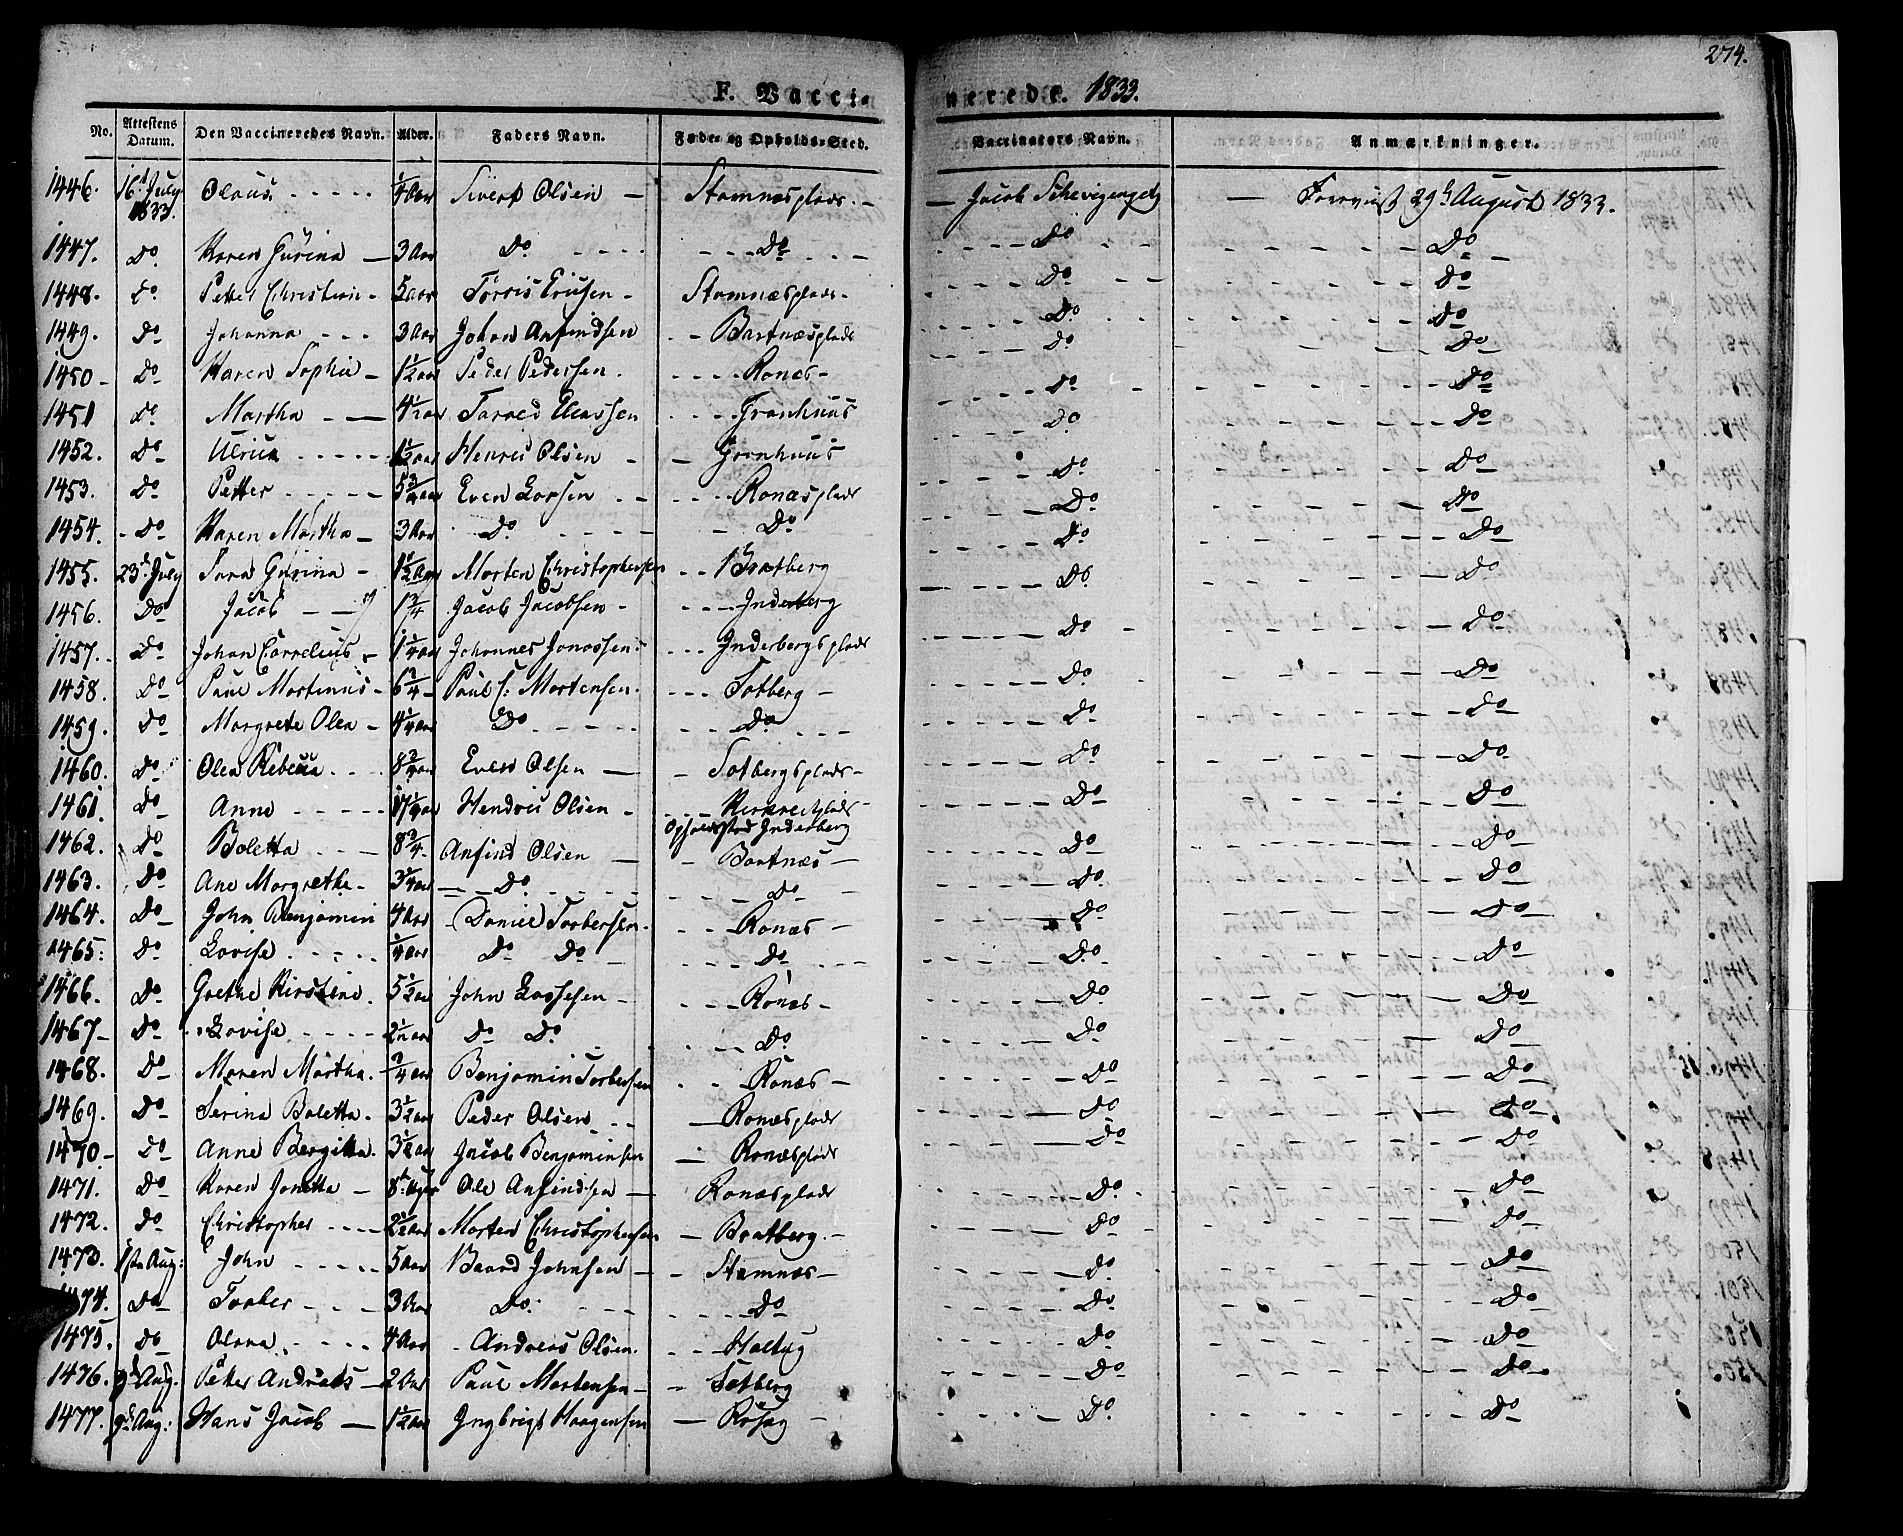 274.
F. Vaccinerede. 1833.
No. Attestens Datum. Den Vaccineredes Navn. Alder. Faders Navn. Føde- og Opholds-Sted. Vaccinators Navn. Anmærkninger.
1446. 16d July 1833. Olaus ¼ Aar Sivert Olsen Stamnesplads Jacob Forevist 29d August 1833.
1447. Do Karen Gurina 3 Aar Do Do Do Do
1448. Do Petter Christian 5 aar Torris Stamnæsplads Do Do
1449. Do Johanna 3 Aar Johan Anfindsen Bartnæsplads Do Do
1450 Do Karen Sophia 1½ aar Peder Pedersen Ronæs Do Do
1451 Do Martha 4½ aar Do Do
1452. Do Ulrica 1½ aar Henric Olsen Do Do
1453. Do Petter 5¾ aar Even Larsen Ronæsplads Do Do
1454. Do Karen Martha 3 Aar Do Do Do Do
1455. 23d July Sara Gurina 1½ Aar Morten Christophersen Bratberg Do Do
1456. Do Jacob 1¾ Jacob Jacobsen Inderberg Do Do
1457. Do Johan Cornelius 1¼ aar Johannes Jonassen Inderbergsplads Do Do
1458. Do Paul Martinus 6¾ Paul Mortensen Do Do
1459. Do Margrete Olea 4¼ aar Do Do Do Do
1460. Do Olea Rebecca 8¾ aar Even Olsen Do Do
1461. Do Anne Hendric Olsen Opholdssted Inderberg Do Do
1462. Do Boletta 8¾ Anfind Olsen Bartnæs Do Do
1463. Do Ane Margrethe 3¼ aar Do Do Do Do
1464. Do John Benjamin 4 Aar Daniel Torbersen Ronæs Do Do
1465. Do Lovise ¼ aar Do Do Do Do Do
1466. Do Grethe Kirstine 5½ aar John Ronæs Do Do
1467 Do Lovise 2½ aar Do Do Do Do Do
1468. Do Maren Martha ¾ aar Benjamin Torbersen Ronæs Do Do
1469. Do Serina Boletta 3½ aar Peder Olsen Ronæsplads Do Do
1470. Do Anne Bergitta 3½ aar Jacob Benjaminsen Ronæsplads Do Do
1471. Do Karen Jonetta Ole Anfindsen Ronæsplads Do Do
1472. Do Christopher 2½ aar Morten Christophersen Bratberg Do Do
1473. 1ste Aug: John 5 aar Baard Johnsen Stamnæs Do Do
1474. Do Torber 3 Aar Do Do Do Do
1475. Do Olava 4 Aar Andreas Olsen Do Do
1476. 9d Aug. Petter Andreas 2 Aar Paul Mortensen Do Do
1477. 9d Aug: Hans Jacob 1½ aar Ingbrigt Haagensen Do Do